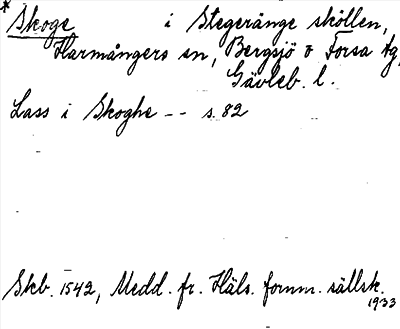 * Skoge i Stegeränge sköllen,
Harmångers sn, Bergsjö o Forsa tg,
Gävleb. l.
Lass i Skoghe -- s. 82
Skb. 1542, Medd. fr. Häls. fornm. sällsk.
1933